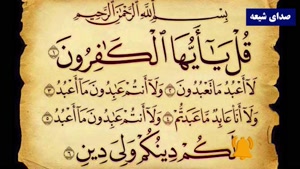 صدای شیعه
بِسْمِ اللَّهِ الرَّحْمَٰنِ الرَّحِيمِ
قُلْ يَا أَيُّهَا الْكَافِرُونَ ۝١
لَا أَعْبُدُ مَا تَعْبُدُونَ ۝٢ وَلَا أَنتُمْ عَابِدُونَ مَا أَعْبُدُ ۝٣
وَلَا أَنَا عَابِدٌ مَّا عَبَدتُّمْ ۝٤ وَلَا أَنتُمْ عَابِدُونَ مَا أَعْبُدُ ۝٥
لَكُمْ دِينُكُمْ وَلِيَ دِينِ ۝٦